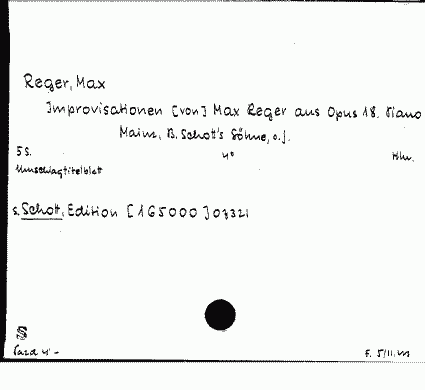 Reger, Max
Improvisationen [von] Max Reger aus Opus 18. Piano
Mainz, B. Schott's Söhne, o.J.
5 S. 4° Hlw.
Umschlagtitelblatt
s. Schott, Edition [165000] 07321
F. 5/11.